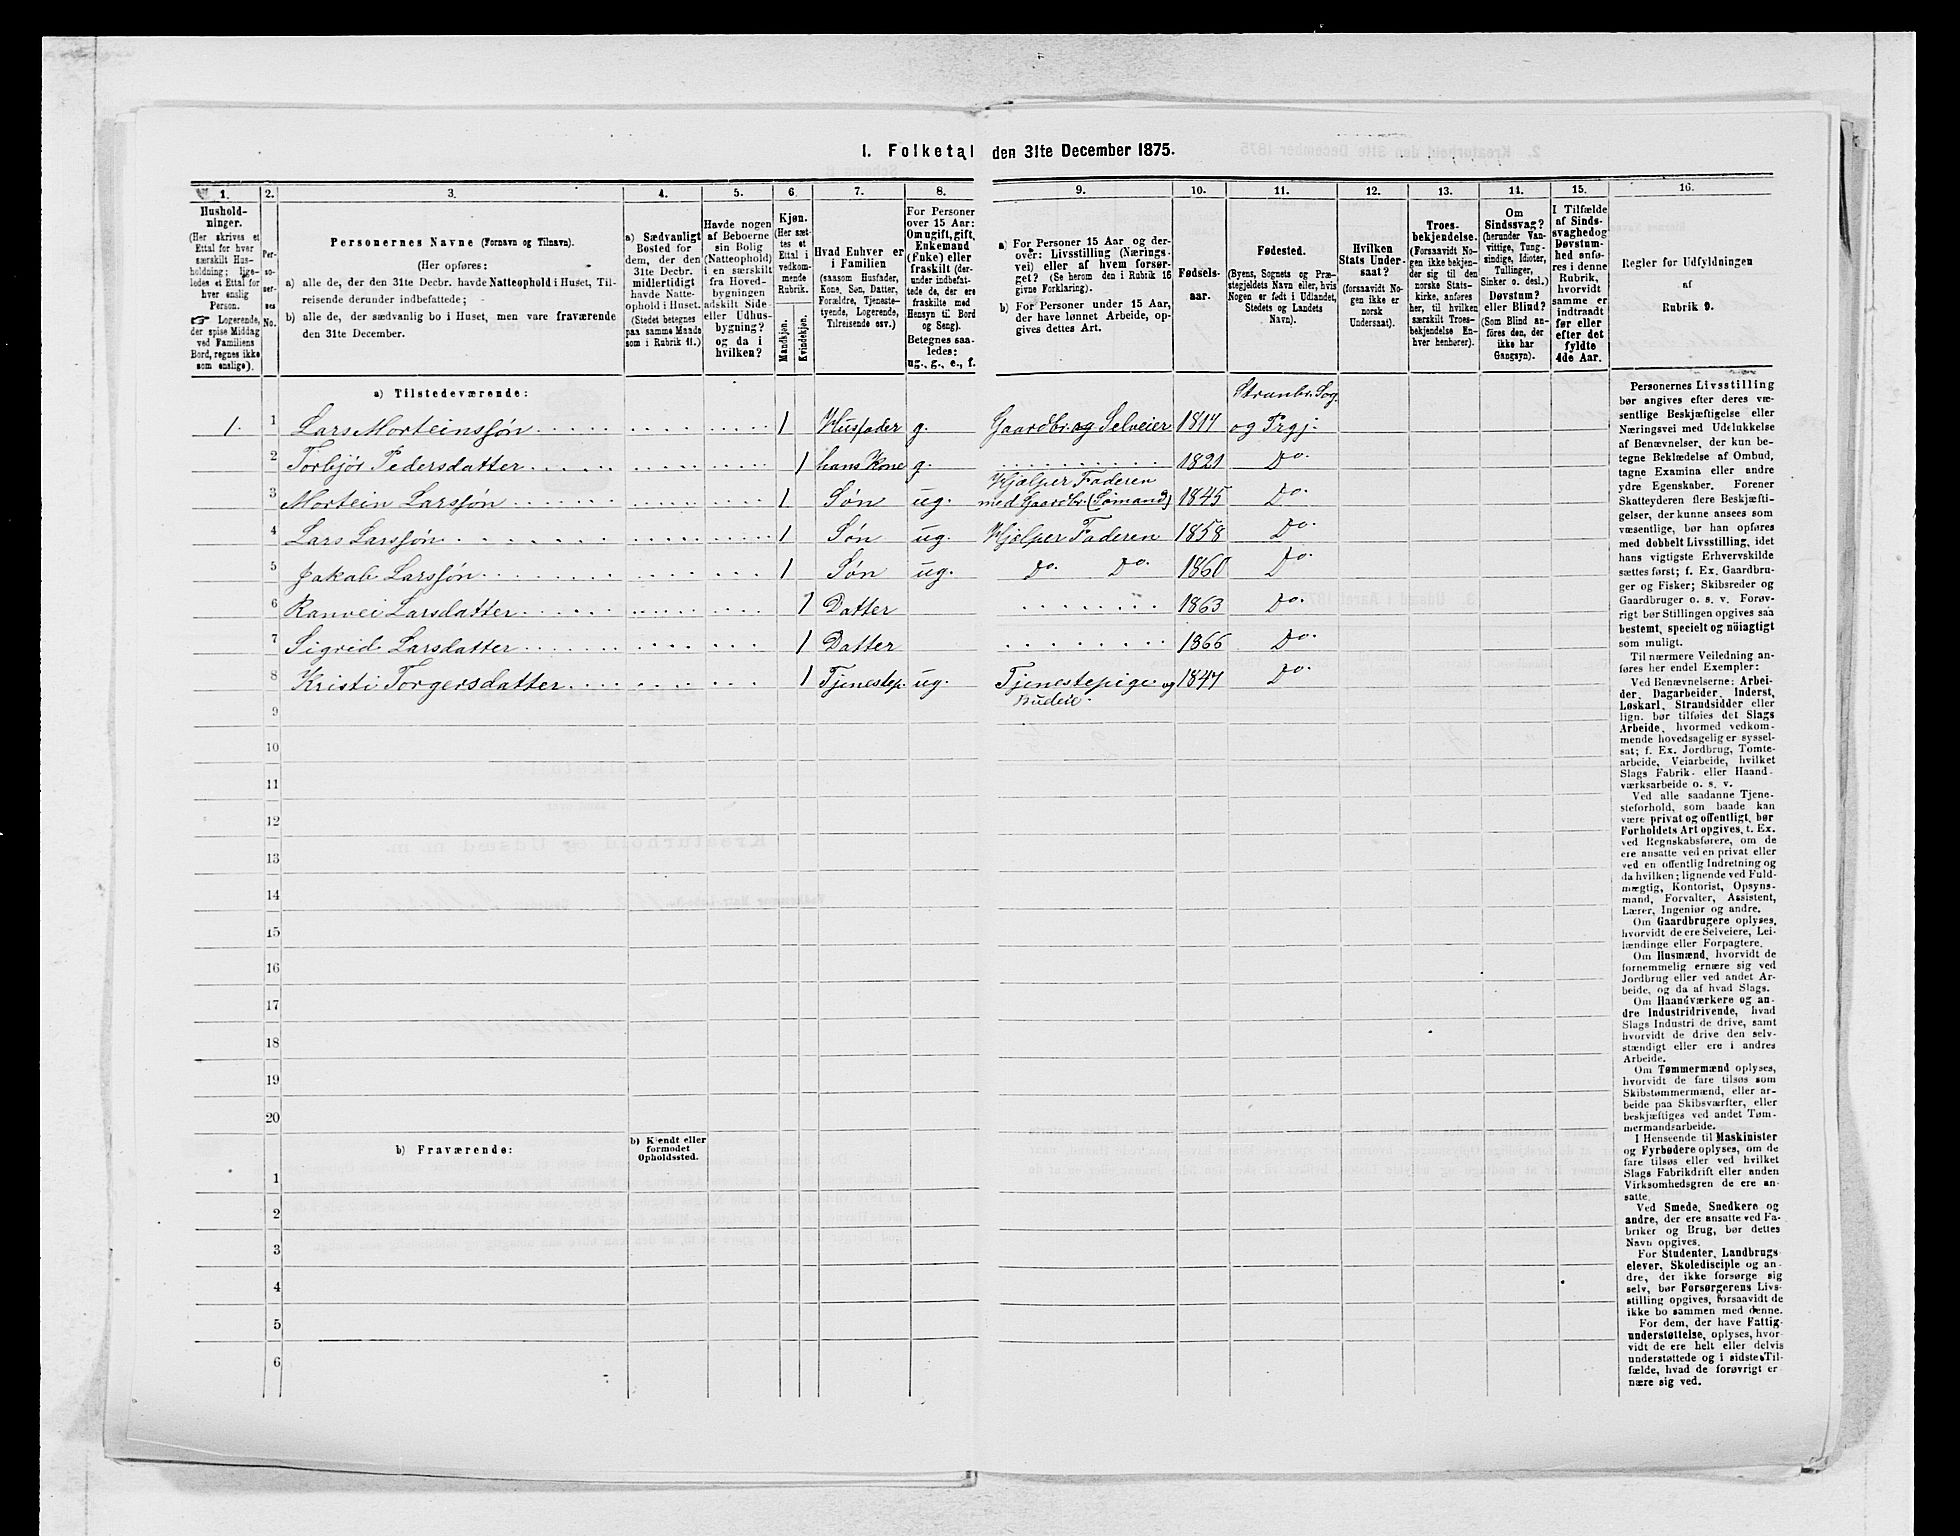 I. Folketal den 31te December 1875.
1. 2. 3. 4. 5. 6. 7. 8. 9. 10. 11. 12. 13. 14. 15. 16.
Hushold-
ninger.
(Her skrives et
Ettal for hver
særskilt Hus-
holdning; lige-
ledes et Ettal for
hver enslig
Person.
☞ Logerende,
der spise Middag
ved Familiens
Bord, regnes ikke
som enslige).
Per-
so-
ner-
nes
No.
Personernes Navne (Fornavn og Tilnavn).
(Her opføres:
a) alle de, der den 31te Decbr. havde Natteophold i Huset, Til-
reisende derunder indbefattede;
b) alle de, der sædvanlig bo i Huset, men vare fraværende
den 31te December.
a) Sædvanligt
Bosted for
dem, der den
31te Decbr.
midlertidigt
havde Natte-
ophold i Huset.
(Stedet betegnes
paa samme Maade
som i Rubrik 11.)
Havde nogen
af Beboerne
sin Bolig
(Natteophold)
i en særskilt
fra Hoved-
bygningen
adskilt Side
eller Udhus-
bygning?
og da i
hvilken?
Kjøn.
(Her sæt-
tes et
Ettal i
vedkom-
mende
Rubrik.
Mandkjøn.
Kvindekjøn.
Hvad Enhver er
i Familien
(saasom Husfader,
Kone, Søn, Datter,
Forældre, Tjeneste-
tyende, Logerende,
Tilreisende osv.)
For Personer
over 15 Aar:
Om ugift, gift,
Enkemand
(Enke) eller
fraskilt (der-
under indbefat-
tede de, der ere
fraskilte med
Hensyn til Bord
og Seng).
Betegnes saa-
ledes:
ug., g., e., f.
a) For Personer 15 Aar og der-
over: Livsstilling (Nærings-
vei) eller af hvem forsør-
get? (Se herom den i Rubrik 16
givne Forklaring).
b) For Personer under 15 Aar,
der have lønnet Arbeide, op-
gives dettes Art.
Fødsels-
aar.
Fødested.
(Byens, Sognets og Præ-
stegjeldets Navn eller, hvis
Nogen er født i Udlandet,
Stedets og Landets
Navn).
Hvilken
Stats Under-
saat?
(forsaavidt No-
gen ikke er
norsk
Undersaat).
Troes-
bekjendelse.
(Forsaavidt No-
gen ikke bekjen-
der sig til den
norske Stats-
kirke, anføres
her, til hvilken
særskilt Troes-
bekjendelse En-
hver henhører).
Om
Sindssvag?
(herunder Van-
vittige, Tung-
sindige, Idioter,
Tullinger,
Sinker o. desl.)
Døvstum?
eller Blind?
(Som Blind an-
føres den, der
ikke har
Gangsyn).
I Tilfælde
af Sinds-
svaghed og
Døvstum-
hed anfø-
res i denne
Rubrik,
hvorvidt
samme er
indtraadt
før eller
efter det
fyldte
4de Aar.
Regler for Udfyldningen
af
Rubrik 9.
a) Tilstedeværende:
Stranbr. Sog.
1. 1 Lars Morteinssøn 1 Husfader g. Gaardbr. og Selveier 1817 og Prgj.
2 Torbjør Pedersdatter 1 hans Kone g. 1821 Do.
Hjælper Faderen
3 Mortein Larssøn 1 Søn ug. med Gaardbr. (Sømand) 1845 Do.
4 Lars Larssøn 1 Søn ug. Hjælper Faderen 1858 Do.
5 Jakab Larssøn 1 Søn ug. Do. Do. 1860 Do.
6 Ranvei Larsdatter 1 Datter 1863 Do.
7 Sigrid Larsdatter 1 Datter 1866 Do.
8 Kristi Torgersdatter 1 Tjenestep. ug. Tjenestepige og 1847 Do.
Budeie.
9
10
11
12
13
14
15
16
17
18
19
20
b) Fraværende:
b) Kjendt eller
formodet
Opholdssted.
1
2
3
4
5
6
Personernes Livsstilling
bør angives efter deres væ-
sentlige Beskjæftigelse eller
Næringsvei med Udelukkelse
af Benævnelser, der kun be-
tegne Beklædelse af Ombud,
tagne Examina eller andre
ydre Egenskaber. Forener
Skatteyderen flere Beskjæfti-
gelser, der kunne ansees som
væsentlige, bør han opføres
med dobbelt Livsstilling, idet
hans vigtigste Erhvervskilde
sættes først; f. Ex. Gaardbru-
ger og Fisker; Skibsreder og
Gaardbruger o. s. v. Forøv-
rigt bør Stillingen opgives saa
bestemt, specielt og nöiagtigt
som muligt.
Til nærmere Veiledning an-
føres her endel Exempler:
Ved Benævnelserne: Arbei-
der, Dagarbeider, Inderst,
Løskarl, Strandsidder eller
lign. bør tilføies det Slags
Arbeide, hvormed vedkom-
mende hovedsagelig er syssel-
sat; f. Ex. Jordbrug, Tomte-
arbeide, Veiarbeide, hvilket
Slags Fabrik- eller Haand-
værksarbeide o. s. v.
Ved alle saadanne Tjene-
steforhold, som baade kan
være privat og offentligt, bør
Forholdets Art opgives, t. Ex.
ved Regnskabsførere, om de
ere ansatte ved en privat eller
ved en offentlig Indretning og
da hvilken; lignende ved Fuld-
mægtig, Kontorist, Opsyns-
mand, Forvalter, Assistent,
Lærer, Ingeniør og andre.
Om Gaardbrugere oplyses,
hvorvidt de ere Selveiere, Lei-
lændinge eller Forpagtere.
Om Husmænd, hvorvidt de
fornemmelig ernære sig ved
Jordbrug eller ved andet Ar-
beide, og da af hvad Slags.
Om Haandværkere og an-
dre Industridrivende, hvad
Slags Industri de drive, samt
hvorvidt de drive den selv-
stændigt eller ere i andres
Arbeide.
Om Tømmermænd oplyses,
hvorvidt de fare tilsøs som
Skibstømmermænd, eller ar-
beide paa Skibsværfter, eller
beskjæftiges ved andet Tøm-
mermandsarbeide.
I Henseende til Maskinister
og Fyrbødere oplyses, om de
fare tilsøs eller ved hvilket
Slags Fabrikdrift eller anden
Virksomhedsgren de ere an-
satte.
Ved Smede, Snedkere og
andre, der ere ansatte ved Fa-
briker og Brug, bør dettes
Navn opgives.
For Studenter, Landbrugs-
elever, Skoledisciple og an-
dre, der ikke forsørge sig
selv, bør Forsørgerens Livs-
stilling opgives, forsaavidt de
ikke bo sammen med denne.
For dem, der have Fattig-
understøttelse, oplyses, hvor-
vidt de ere helt eller delvis
understøttede og i sidste Til-
fælde, hvad de forøvrigt er-
nære sig ved.